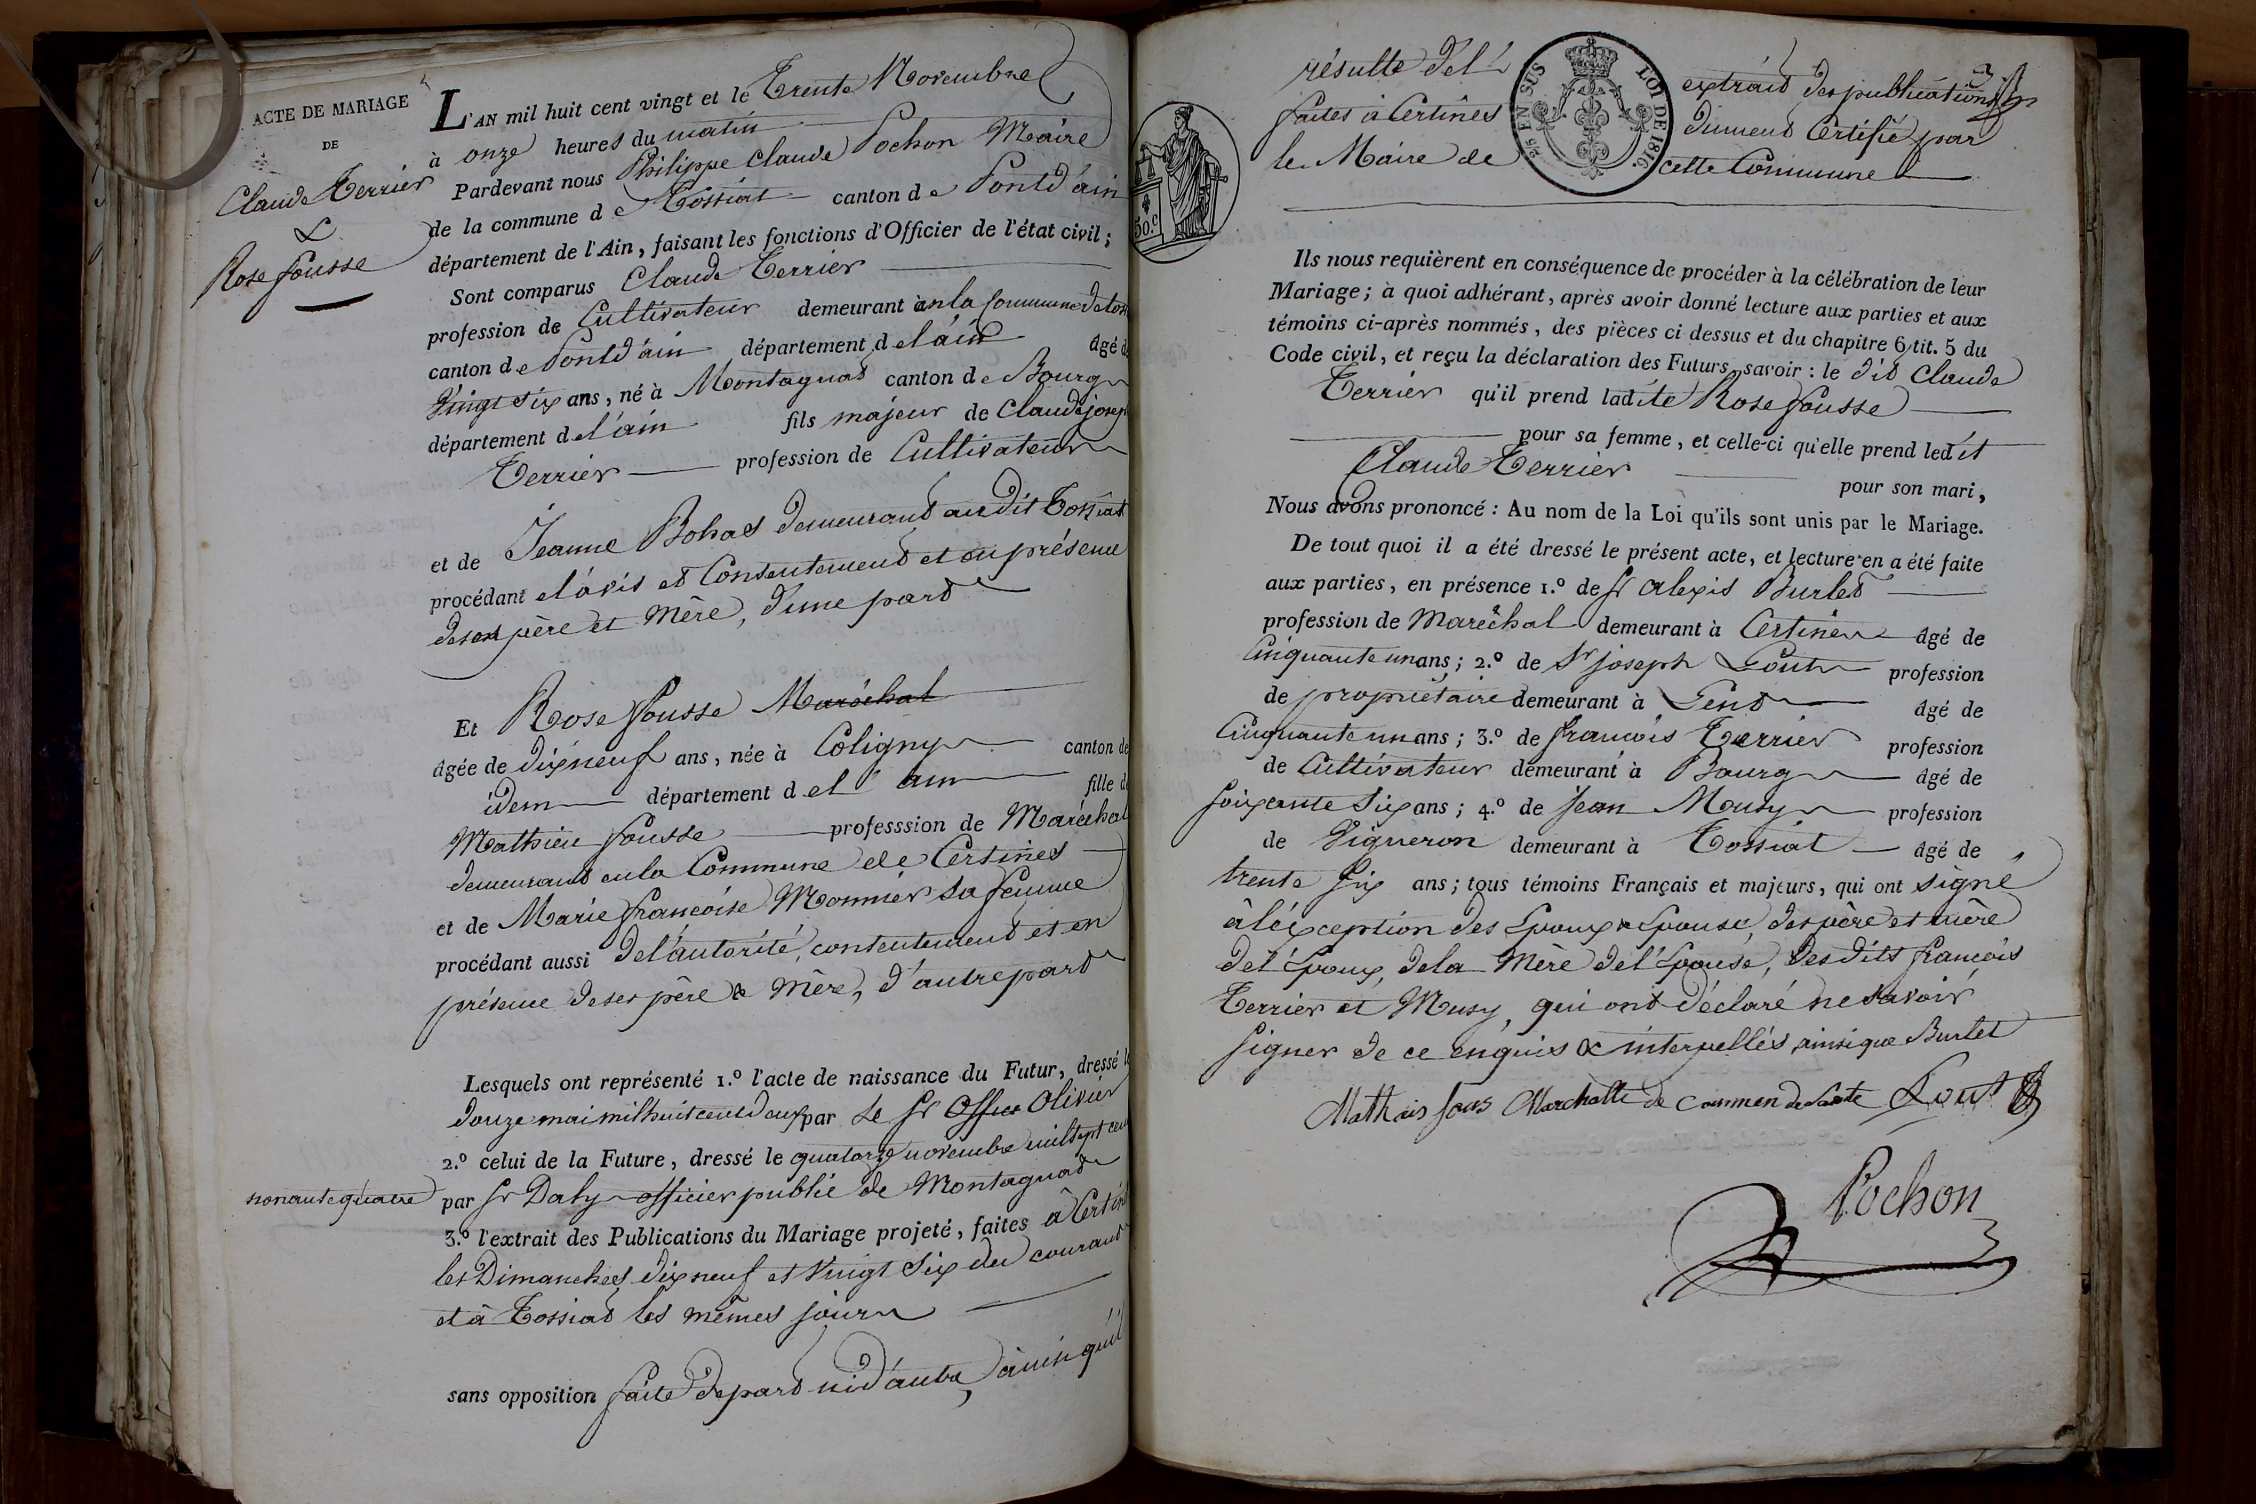 ACTE DE MARIAGE
DE
Claude Terrier
&
Rose fousse
L'AN mil huit cent vingt et le Trente Novembre
à onze heures du matin
Pardevant nous Philippe Claude Pochon Maire
de la commune de Tossiat canton de Pontd'ain
département de l'Ain, faisant les fonctions d'Officier de l'état civil;
Sont comparus Claude Terrier
profession de Cultivateur demeurant àenla Commune de toss
canton de Pontd'ain département de l'ain âgé de
Vingt Six ans, né à Montagnat canton de Bourg
département de l'ain fils majeur de Claude joseph
Terrier profession de Cultivateur
et de Jeanne Bohas demeurant audit Tossiat
procédant el'avis et Consentement et en présence
deson père et Mère, d'une part
Et Rose fousse Maréchal
âgée de dixneuf ans, née à Coligny canton de
idem département de l'ain fille de
Mathieu fousse professsion de Maréchal
demeurant enla Commune de Certines
et de Marie françoise Monnier sa femme
procédant aussi del'autorité, consentement et en
présence deses père & Mère, d'autre part
Lesquels ont représenté 1.º l'acte de naissance du Futur, dressé le
douze mai milhuitcent deux par Le Sr Olivier
2.º celui de la Future, dressé le quatorze novembre mil sept cent
nonante quatre
par Sr Daly officier public de Montagnat
3.º l'extrait des Publications du Mariage projeté, faites à Certines
les Dimanches dixneuf et Vingt Six du courant
et à Tossiat les mêmes jours
sans opposition faite depart nid'autre, ainsi qu'il
résulte del'
extrait des publications
faites à Certines
duement Certifié par
le Maire de
cette Commune
25 EN SUS LOI DE 1816.
50.c
Ils nous requièrent en conséquence de procéder à la célébration de leur
Mariage; à quoi adhérant, après avoir donné lecture aux parties et aux
témoins ci-après nommés, des pièces ci dessus et du chapitre 6, tit. 5 du
Code civil, et reçu la déclaration des Futurs, savoir: le dit Claude
Terrier qu'il prend ladite Rose fousse
pour sa femme, et celle-ci qu'elle prend ledit
Claude Terrier pour son mari,
Nous avons prononcé: Au nom de la Loi qu'ils sont unis par le Mariage.
De tout quoi il a été dressé le présent acte, et lecture en a été faite
aux parties, en présence 1.º de Sr Alexis Burlet
profession de Maréchal demeurant à Certines âgé de
Cinquante un ans; 2.º de Sr joseph profession
de propriétaire demeurant à Lent âgé de
Cinquante un ans; 3.º de françois Terrier profession
de Cultivateur demeurant à Bourg âgé de
Soixante Six ans; 4.º de Jean Musy profession
de Vigneron demeurant à Tossiat âgé de
trente Six ans; tous témoins Français et majeurs, qui ont signé
à l'éxception des Epoux & Epouse, des père et mère
del'Epoux, dela Mère del'Epouse, Desdits françois
Terrier et Musy, qui ont déclaré ne savoir
signer de ce enquis & interpellés, ainsi que Burlet
Mathais fous Marchalle de
Pochon